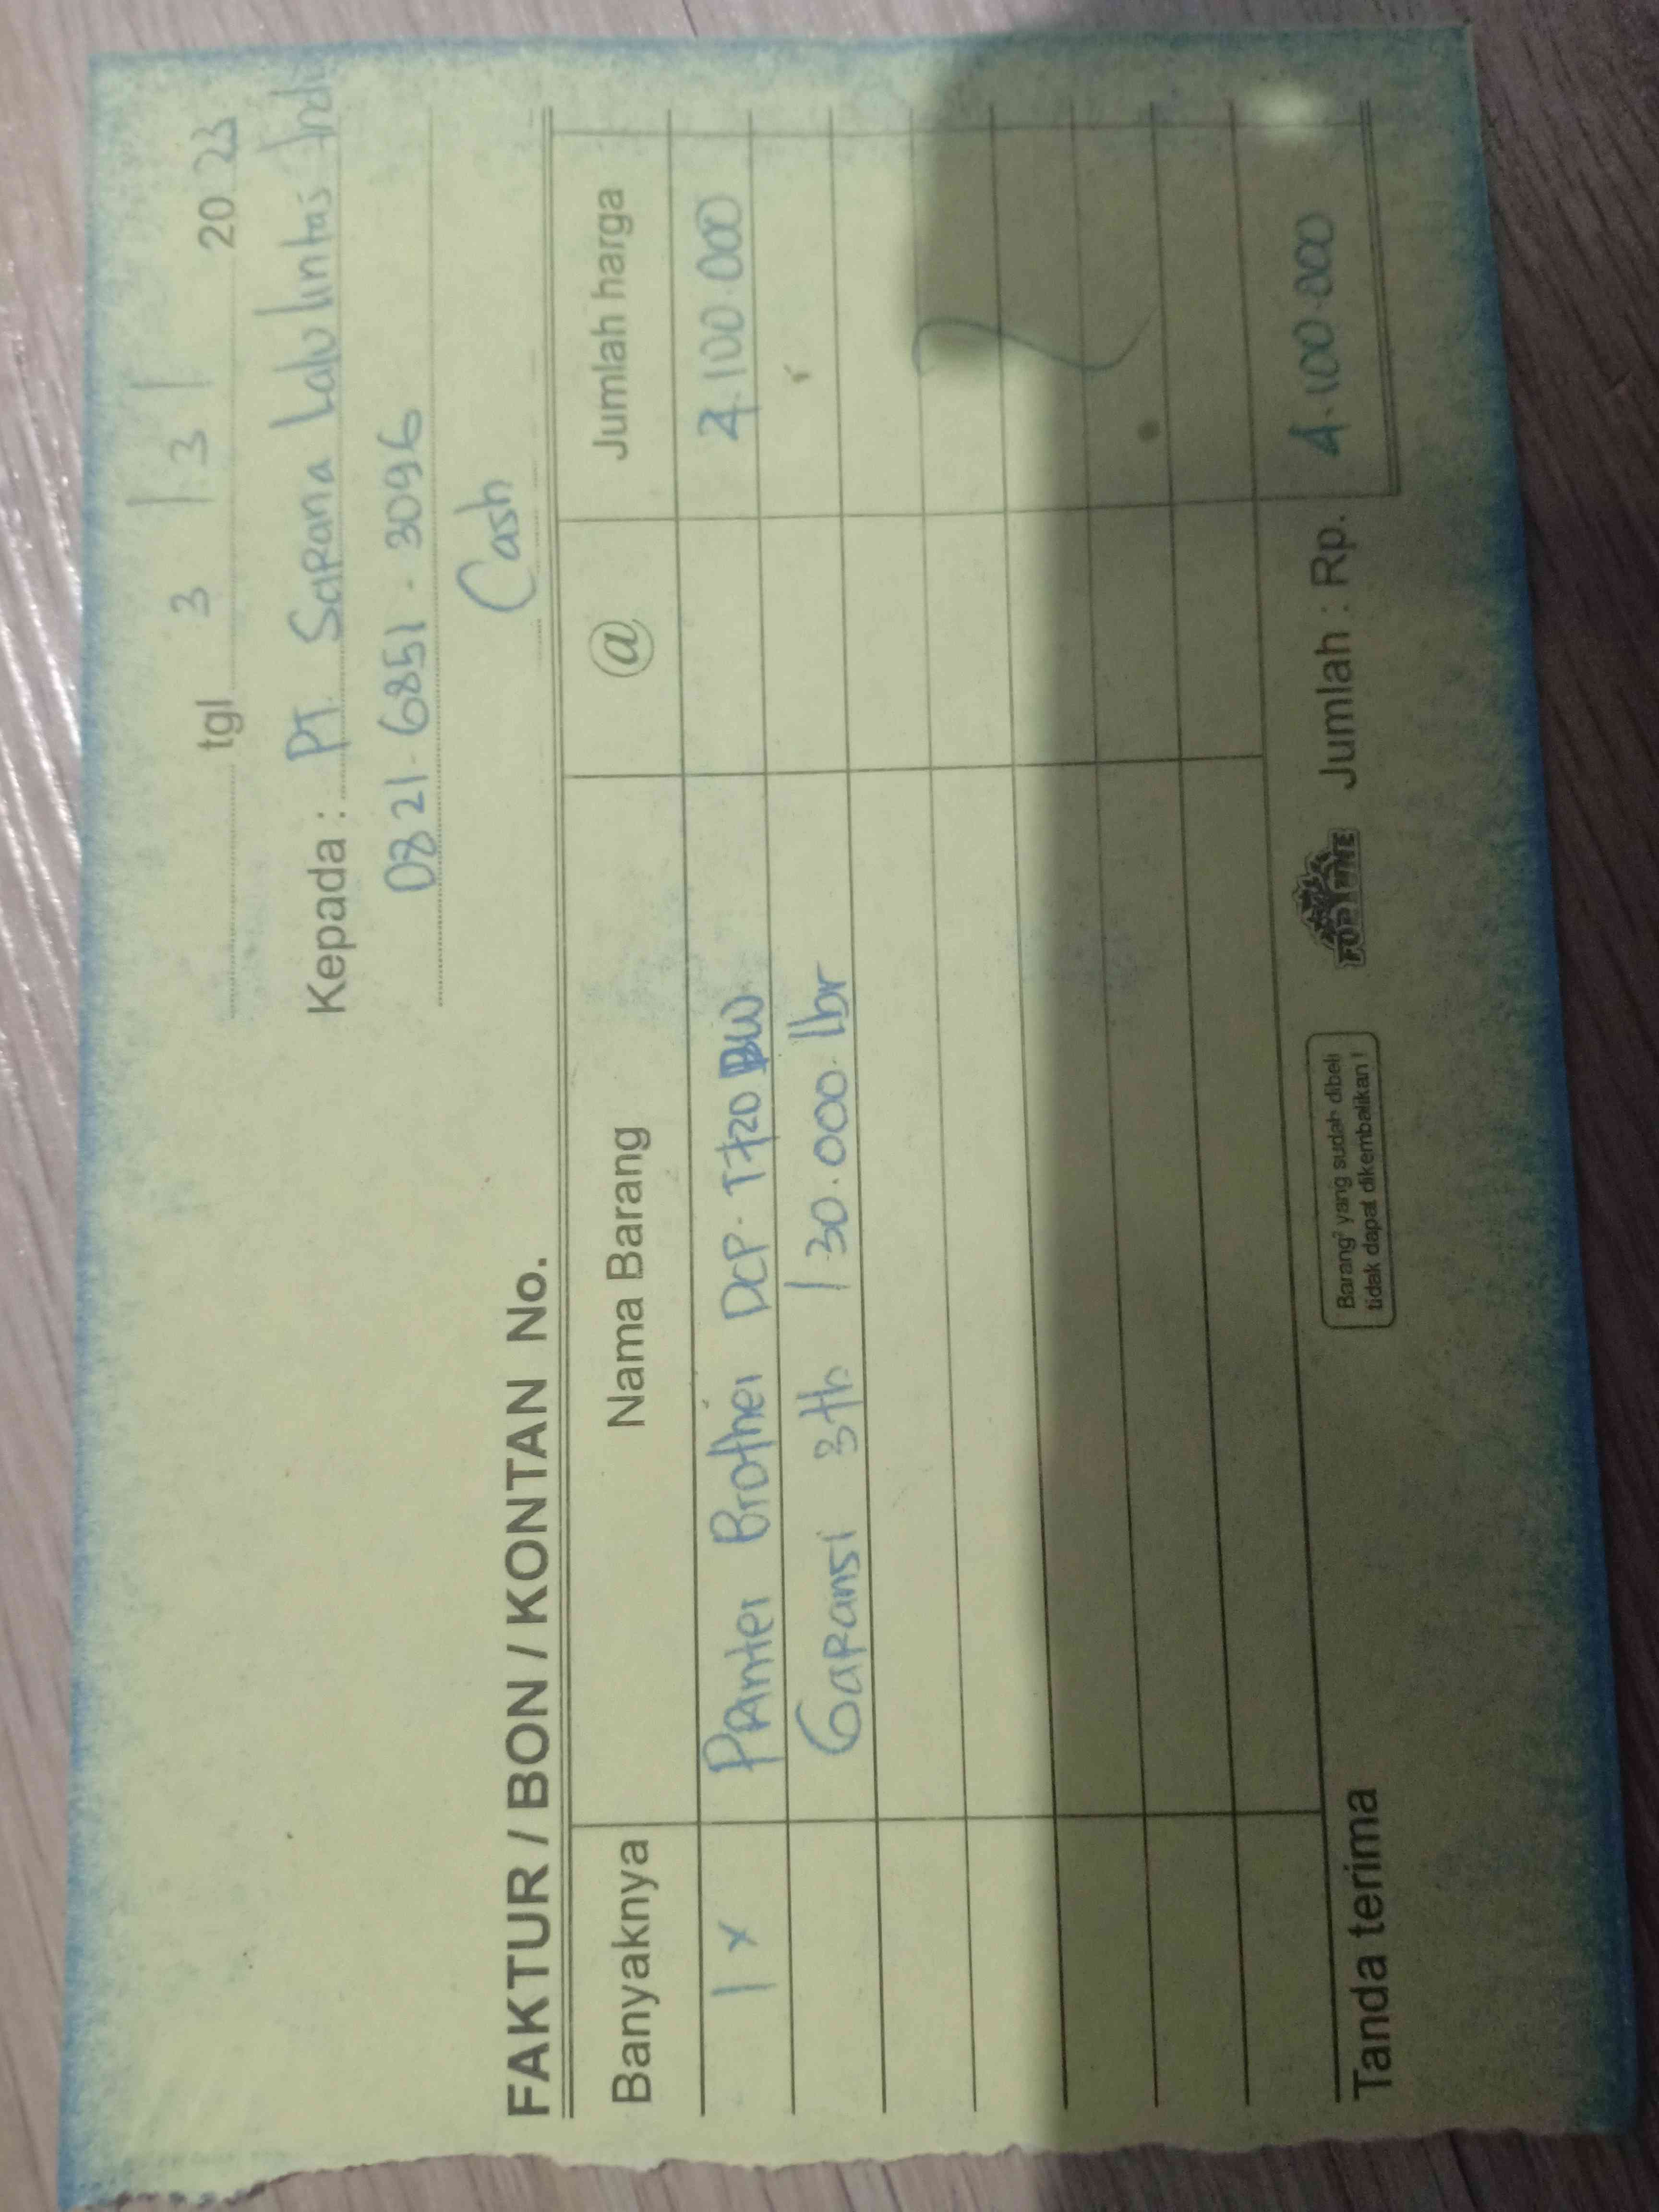 tgl 3 / 3 / 2023
Kepada : PT. Sarana Lalu lintas Ind
0821-6851-3096
Cash
FAKTUR / BON / KONTAN No.
Banyaknya Nama Barang @ Jumlah harga
1 x Printer Brother DCP-T720 DW 4.100.000
Garansi 3th / 30.000 lbr
Tanda terima
Barang² yang sudah dibeli
tidak dapat dikembalikan !
FORTUNE
Jumlah : Rp. 4.100.000